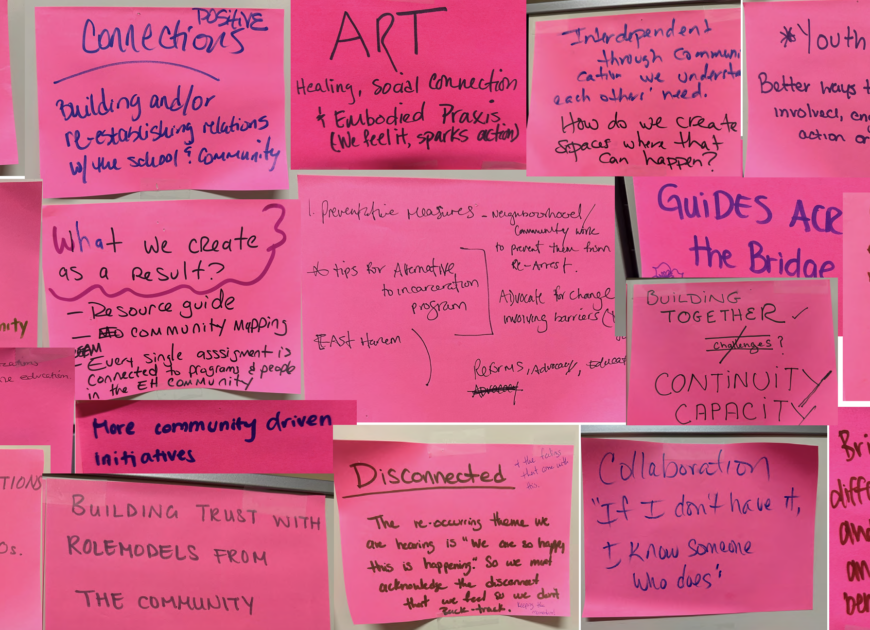 POSITIVE
Connections
Building and/or
re-establishing relations
w/ the school & Community
ART
Healing, Social Connection
& Embodied Praxis
(We feel it, sparks action)
Interdependent
through Communi
cation we understa
each others' need.
How do we create
spaces where that
can happen?
*Youth
Better ways t
involved, en
action or
What we create
as a Result?
- Resource guide
- Community Mapping
- Every single asssigment is
connected to programs & people
in the EH community
1. Preventative Measures - Neighbourhood/
Community work
to prevent them from
Re-Arrest.
* tips for Alternative
to incarceration
program
Advocate for change
involving barriers (
East Harlem
Reforms, Advocacy, Educat
Advocacy
GUIDES ACR
the Bridge
BUILDING
TOGETHER ✓
challenges?
CONTINUITY
CAPACITY
nity
re education.
More community driven
initiatives
TIONS
Os.
BUILDING TRUST WITH
ROLEMODELS FROM
THE COMMUNITY
Disconnected
& the feelings
that come with
this.
The re-occurring theme we
are hearing is "We are so happy
this is happening." So we must
acknowledge the disconnect
that we feel so we don't
Back-track.
Collaboration
"If I don't have it,
I know someone
who does"
Bri
diffe
and
an
ber